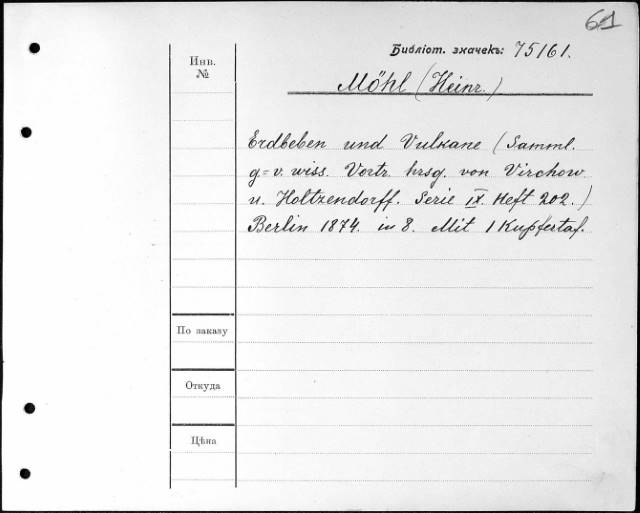 61
Библіот. значекъ: 75161.
Инв.
№
Möhl (Heinr.)
Erdbeben und Vulkane (Samml.
g=v. wiss. Vortr. hrsg. von Virchow
u. Holtzendorff. Serie IX. Heft 202.)
Berlin 1874. in 8. Mit 1 Kupfertaf.
По заказу
Откуда
Цѣна